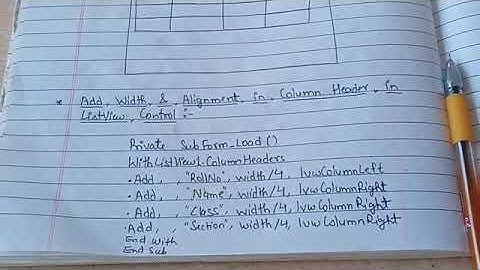 * Add, Width, & Alignment, in Column Header, in
ListView Control :-
Private Sub Form_Load()
With ListView1.ColumnHeaders
.Add, , "RollNo", width/4, lvwColumnLeft
.Add, , "Name", width/4, lvwColumnRight
.Add, , "Class", width/4, lvwColumnRight
.Add, , "Section", width/4, lvwColumnRight
End With
End Sub